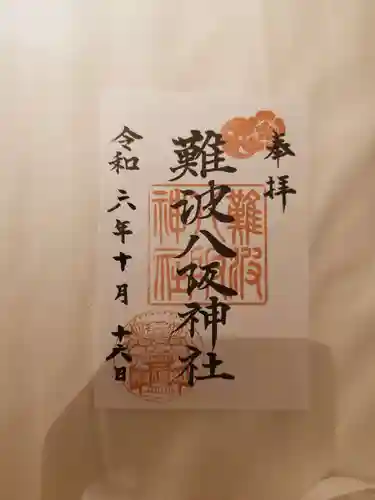 奉拝
難波八阪神社
令和六年十月十六日
難波
八阪
神社